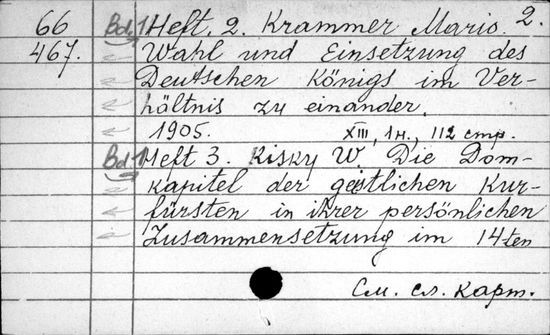 66 Bd. 1 Heft. 2. Krammer Mario. 2.
467. Wahl und Einsetzung des
Deutschen Königs im Ver-
hältnis zu einander.
1905. XIII, 1н., 112 стр.
Bd. 1 Heft 3. Kisky W. Die Dom-
kapitel der geistlichen Kur-
fürsten in ihrer persönlichen
Zusammensetzung im 14ten
См. сл. карт.